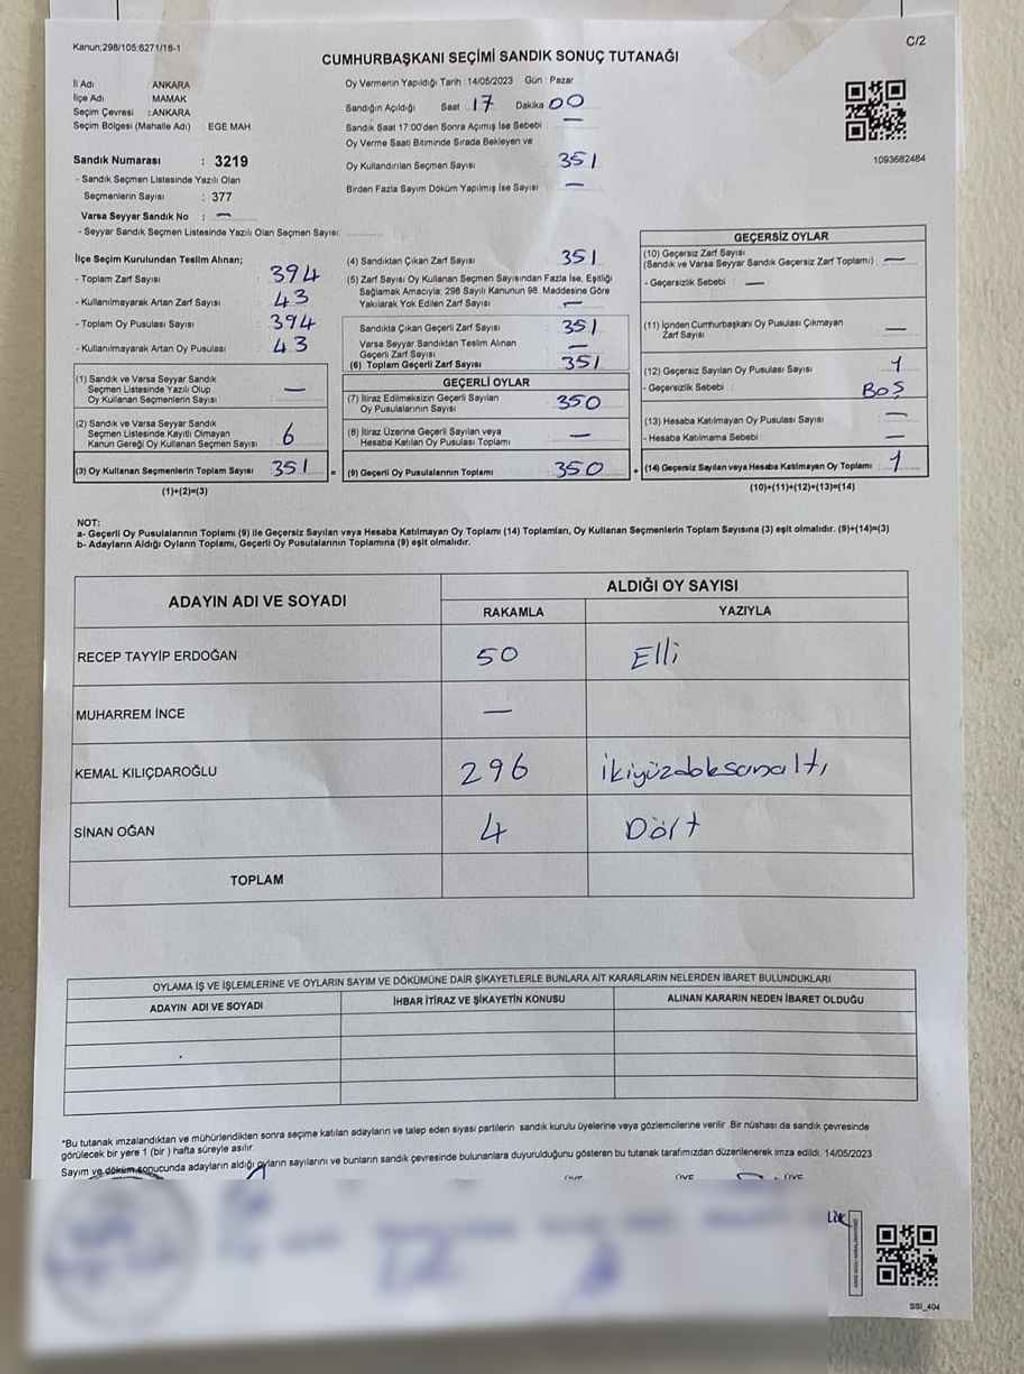 Kanun;298/105;6271/16-1
C/2
CUMHURBAŞKANI SEÇİMİ SANDIK SONUÇ TUTANAĞI
İl Adı ANKARA
İlçe Adı MAMAK
Seçim Çevresi : ANKARA
Seçim Bölgesi (Mahalle Adı) EGE MAH
Sandık Numarası : 3219
- Sandık Seçmen Listesinde Yazılı Olan
Seçmenlerin Sayısı : 377
Varsa Seyyar Sandık No : —
- Seyyar Sandık Seçmen Listesinde Yazılı Olan Seçmen Sayısı:
Oy Vermenin Yapıldığı Tarih : 14/05/2023 Gün : Pazar
Sandığın Açıldığı Saat : 17 Dakika 00
Sandık Saat 17:00'den Sonra Açımış İse Sebebi : —
Oy Verme Saati Bitiminde Sırada Bekleyen ve
Oy Kullandırılan Seçmen Sayısı 351
Birden Fazla Sayım Döküm Yapılmış İse Sayısı —
1093682484
İlçe Seçim Kurulundan Teslim Alınan;
- Toplam Zarf Sayısı : 394
- Kullanılmayarak Artan Zarf Sayısı : 43
- Toplam Oy Pusulası Sayısı : 394
- Kullanılmayarak Artan Oy Pusulası : 43
(1) Sandık ve Varsa Seyyar Sandık
Seçmen Listesinde Yazılı Olup
Oy Kullanan Seçmenlerin Sayısı —
(2) Sandık ve Varsa Seyyar Sandık
Seçmen Listesinde Kayıtlı Olmayan
Kanun Gereği Oy Kullanan Seçmen Sayısı 6
(3) Oy Kullanan Seçmenlerin Toplam Sayısı 351
(1)+(2)=(3)
(4) Sandıktan Çıkan Zarf Sayısı 351
(5) Zarf Sayısı Oy Kullanan Seçmen Sayısından Fazla İse, Eşitliği
Sağlamak Amacıyla; 298 Sayılı Kanunun 98. Maddesine Göre
Yakılarak Yok Edilen Zarf Sayısı —
Sandıkta Çıkan Geçerli Zarf Sayısı 351
Varsa Seyyar Sandıktan Teslim Alınan
Geçerli Zarf Sayısı —
(6) Toplam Geçerli Zarf Sayısı 351
GEÇERLİ OYLAR
(7) İtiraz Edilmeksizin Geçerli Sayılan
Oy Pusulalarının Sayısı 350
(8) İtiraz Üzerine Geçerli Sayılan veya
Hesaba Katılan Oy Pusulası Toplamı —
= (9) Geçerli Oy Pusulalarının Toplamı 350
GEÇERSİZ OYLAR
(10) Geçersiz Zarf Sayısı
(Sandık ve Varsa Seyyar Sandık Geçersiz Zarf Toplamı) —
- Geçersizlik Sebebi : —
(11) İçinden Cumhurbaşkanı Oy Pusulası Çıkmayan
Zarf Sayısı —
(12) Geçersiz Sayılan Oy Pusulası Sayısı 1
- Geçersizlik Sebebi : BOŞ
(13) Hesaba Katılmayan Oy Pusulası Sayısı —
- Hesaba Katılmama Sebebi : —
+ (14) Geçersiz Sayılan veya Hesaba Katılmayan Oy Toplamı 1
(10)+(11)+(12)+(13)=(14)
NOT:
a- Geçerli Oy Pusulalarının Toplamı (9) ile Geçersiz Sayılan veya Hesaba Katılmayan Oy Toplamı (14) Toplamları, Oy Kullanan Seçmenlerin Toplam Sayısına (3) eşit olmalıdır. (9)+(14)=(3)
b- Adayların Aldığı Oyların Toplamı, Geçerli Oy Pusulalarının Toplamına (9) eşit olmalıdır.
ADAYIN ADI VE SOYADI ALDIĞI OY SAYISI
RAKAMLA YAZIYLA
RECEP TAYYİP ERDOĞAN 50 Elli
MUHARREM İNCE —
KEMAL KILIÇDAROĞLU 296 ikiyüzdoksanaltı
SİNAN OĞAN 4 Dört
TOPLAM
OYLAMA İŞ VE İŞLEMLERİNE VE OYLARIN SAYIM VE DÖKÜMÜNE DAİR ŞİKAYETLERLE BUNLARA AİT KARARLARIN NELERDEN İBARET BULUNDUKLARI
ADAYIN ADI VE SOYADI İHBAR İTİRAZ VE ŞİKAYETİN KONUSU ALINAN KARARIN NEDEN İBARET OLDUĞU
*Bu tutanak imzalandıktan ve mühürlendikten sonra seçime katılan adayların ve talep eden siyasi partilerin sandık kurulu üyelerine veya gözlemcilerine verilir. Bir nüshası da sandık çevresinde
görülecek bir yere 1 (bir) hafta süreyle asılır.
Sayım ve döküm sonucunda adayların aldığı oyların sayılarını ve bunların sandık çevresinde bulunanlara duyurulduğunu gösteren bu tutanak tarafımızdan düzenlenerek imza edildi. 14/05/2023
ÜYE ÜYE ÜYE
SSİ_404